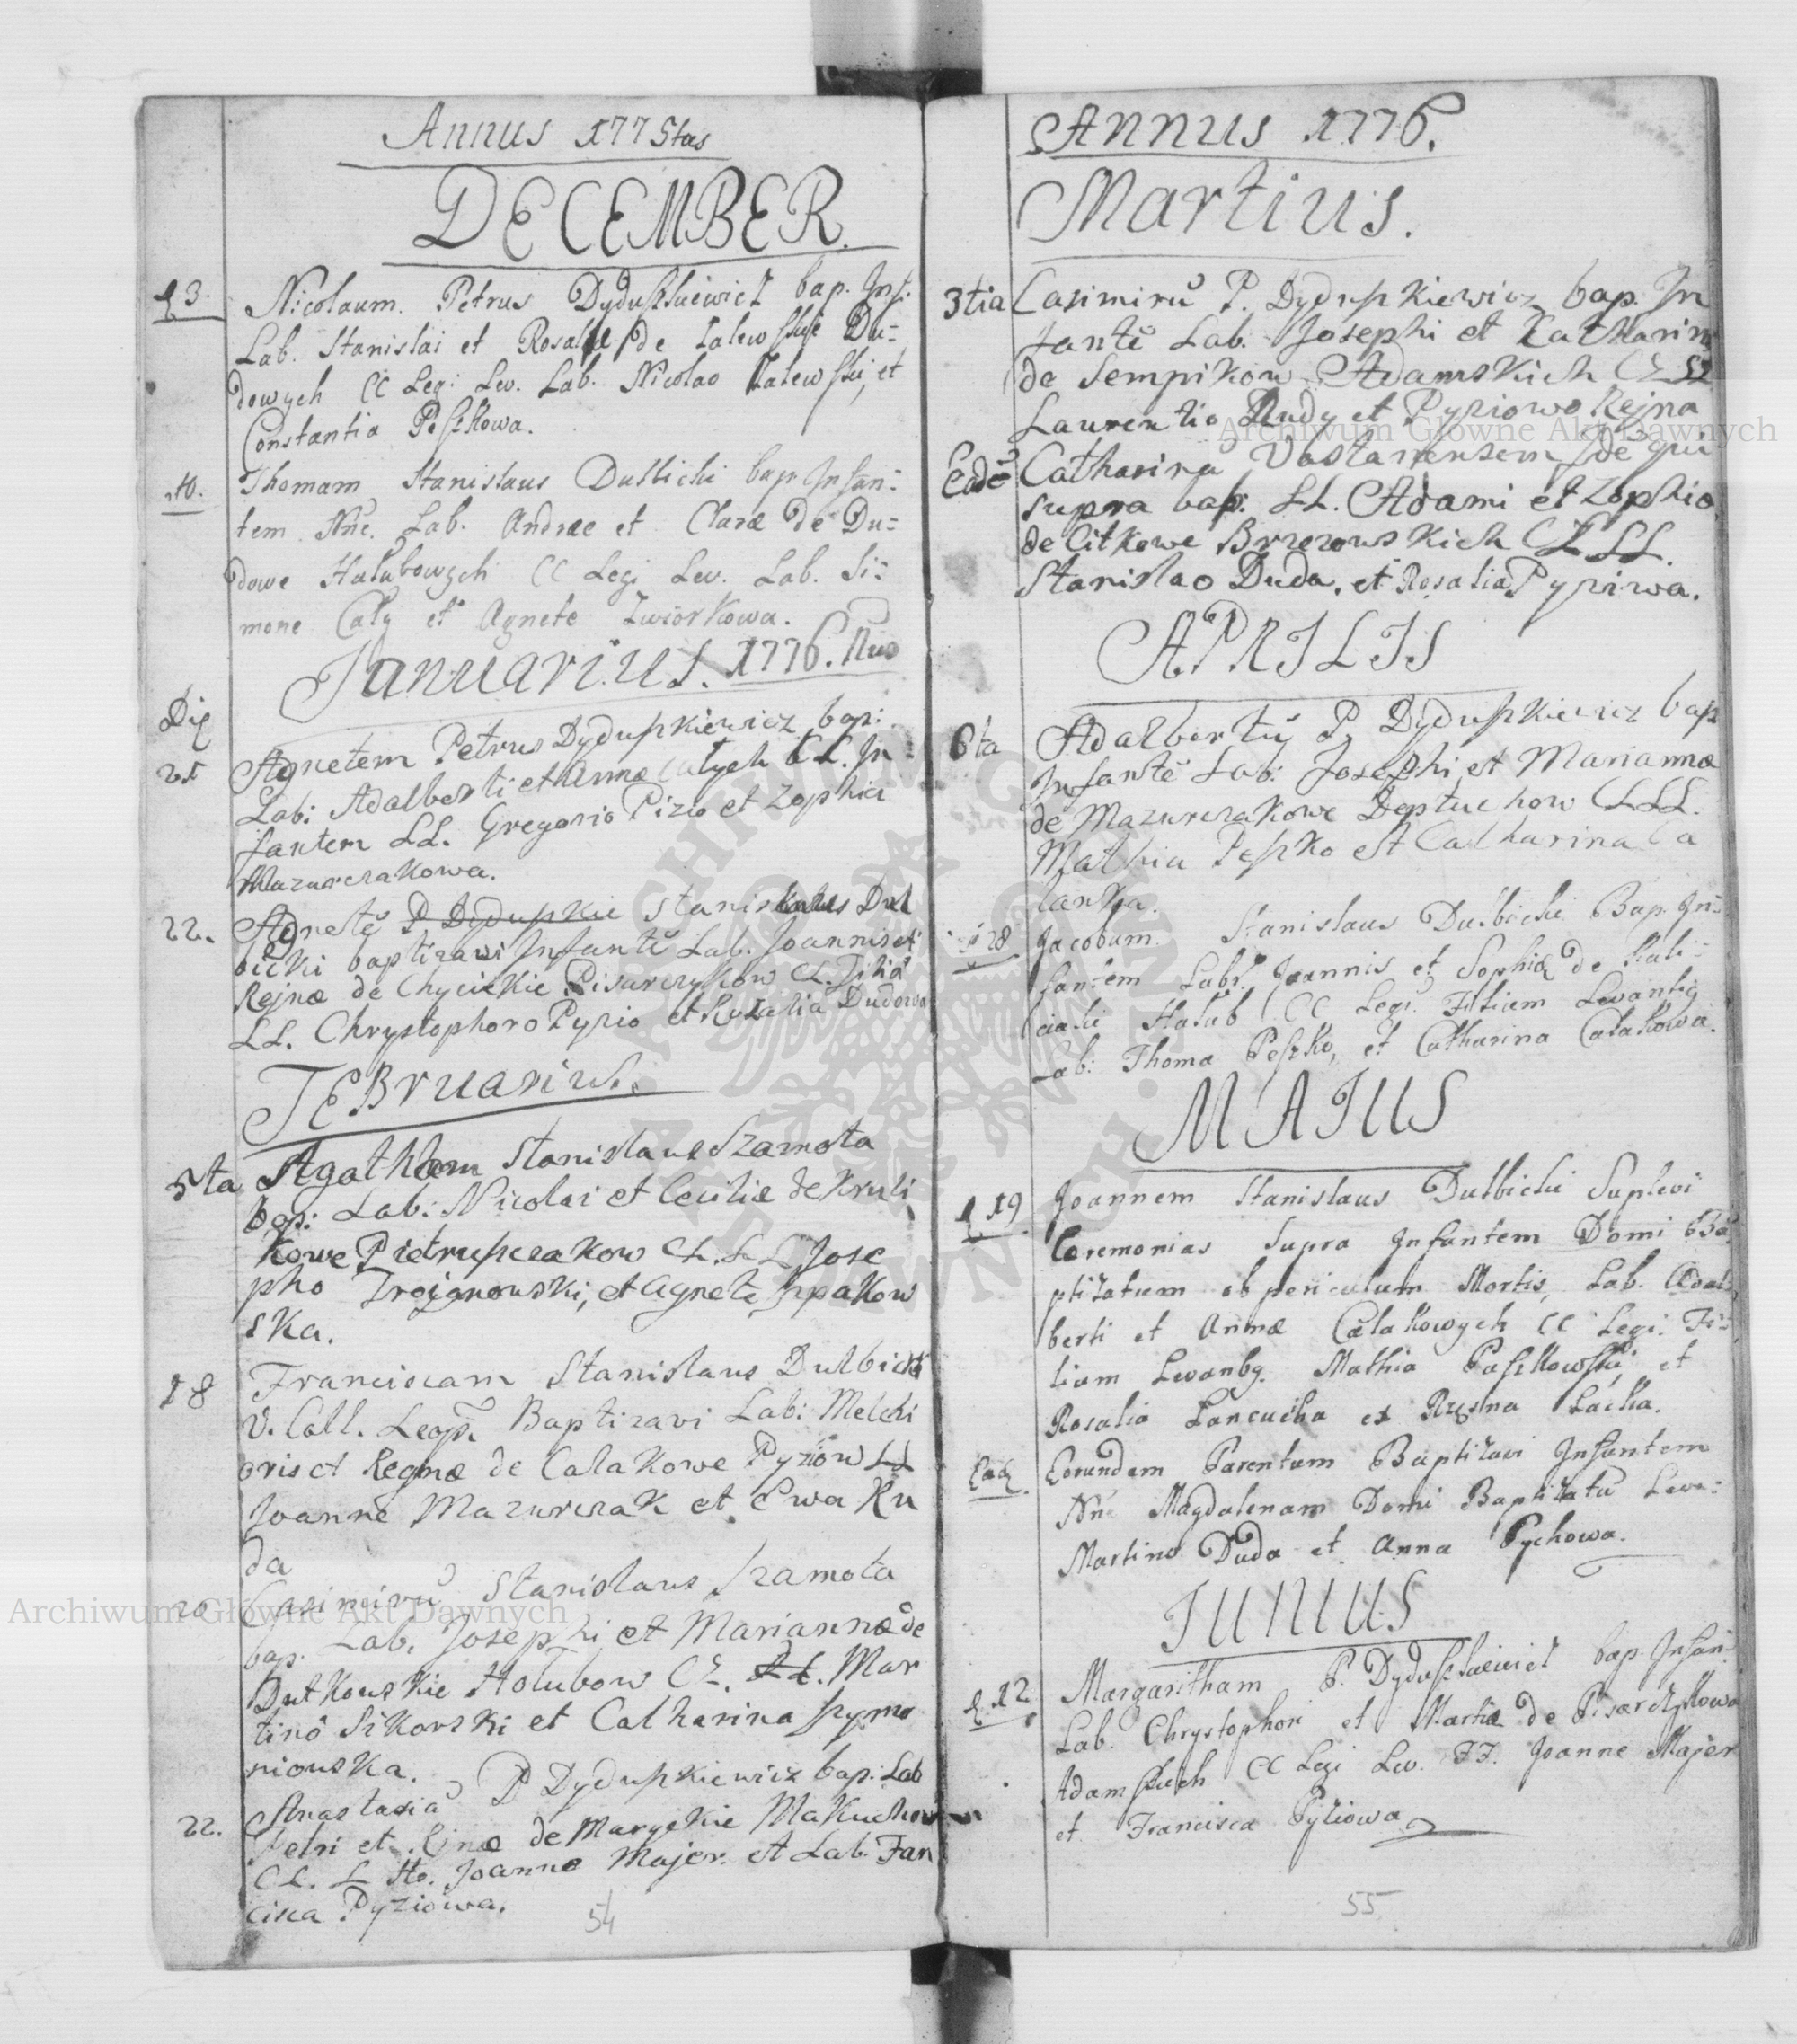 Annus 1775tus
DECEMBER.
13. Nicolaum. Petrus Dyduszkiewicz bap. Inf:
Lab. Stanislai et Rosaliæ de Zalewskie Du-
dowych CC Legi: Lev. Lab. Nicolao Zalewski, et
Constantia Peszkowa.
Thomam Stanislaus Dulbicki bap Infan-
tem Nne. Lab. Andræ et Claræ de Du-
dowe Hałubowych CC Legi Lev. Lab. Si-
mone Cały et Agnete Zwiorkowa.
Januarius. 1776.
Die
21 Agnetem Petrus Dyduszkiewicz bap:
Lab: Adalberti et Annæ Całych CL. In
fantem LL. Gregorio Pizio et Zophia
Mazurczakowa.
22. Agnetē P Dyduszkie Stanislaus Dul
bicki baptizavi Infantē Lab. Joannis et
Rejnæ de Chycickie Pisarczykow CL. Filiā
LL. Chrystophoro Pyzio et Rozalia Dudowa
FEBruarius.
5ta Agatham Stanislaus Szamota
bap: Lab: Nicolai et Ceciliæ de Kruli
kowe Pietruszczakow CL. L L Jose
pho Trojanowski, et Agnete Szpakow
ska.
18 Franciscam Stanislaus Dulbicki
V. Coll. Leop. Baptizavi Lab: Melchi
oris et Reginæ de Calakowe Pyziow LL
Joanne Mazurczak et Ewa Ku
da
20 Casimirū Stanislaus Szamota
bap. Lab. Josephi et Mariannæ de
Dutkowskie Holubow CL. LL. Mar
tino Sikorski et Catharina Szyma
niowska.
22. Anastasiā P Dyduszkiewicz bap: Lab
Petri et Rejnæ de Maryckie Makuchow
CL. L Ho. Joanne Majer. et Lab. Fran
cisca Pyziowa.
54
Annus 1776.
Martius.
3tia Casimirū P. Dyduszkiewicz bap. In
fantē Lab. Josephi et Catharin
de Sempikow Adamskich CL LL
Laurentio Rudy et Pyziowo Rejna
Eadē Catharina Vastanensem de qui
supra bap. LL. Adami et Zophia
de Citkowe Brzezowskich CL LL.
Stanislao Duda. et Rosalia Pyziwa.
APRILIS
6ta Adalbertū P. Dyduszkiewicz bap
Infantē Lab: Josephi et Mariannæ
de Mazurczakowe Deptuchow CLLL.
Mathia Peszko et Catharina Ca
lanka.
28 Jacobum Stanislaus Dulbicki Bap. In-
fantem Labr. Joannis et Sophiæ de Kali-
ciaki Hałub CC Legi. Filium Levantib
Lab: Thoma Peszko, et Catharina Całakowa.
MAJUS
19 Joannem Stanislaus Dulbicki Suplevi
Ceremonias supra Infantem Domi Ba
ptizatum ob periculum Mortis, Lab. Adal
berti et Annæ Całakowych CC Legi: Fi-
lium Levanbg. Mathia Paszkowski, et
Rosalia Lancucka et Regina Łacka.
Ead. Eorundem Parentum Baptizavi Infantem
Nne Magdalenam Domi Baptizatū Leva-
Martino Duda et Anna Pychowa.
JUNIUS
12 Margaritham P. Dyduszkiewicz bap. Infan-
Lab. Chrystophori et Martiæ de Pisarczykowa
Adamskich CC Legi Lev. FF. Joanne Majer
et Francisca Pyziowa
55
Archiwum Główne Akt Dawnych
Archiwum Główne Akt Dawnych